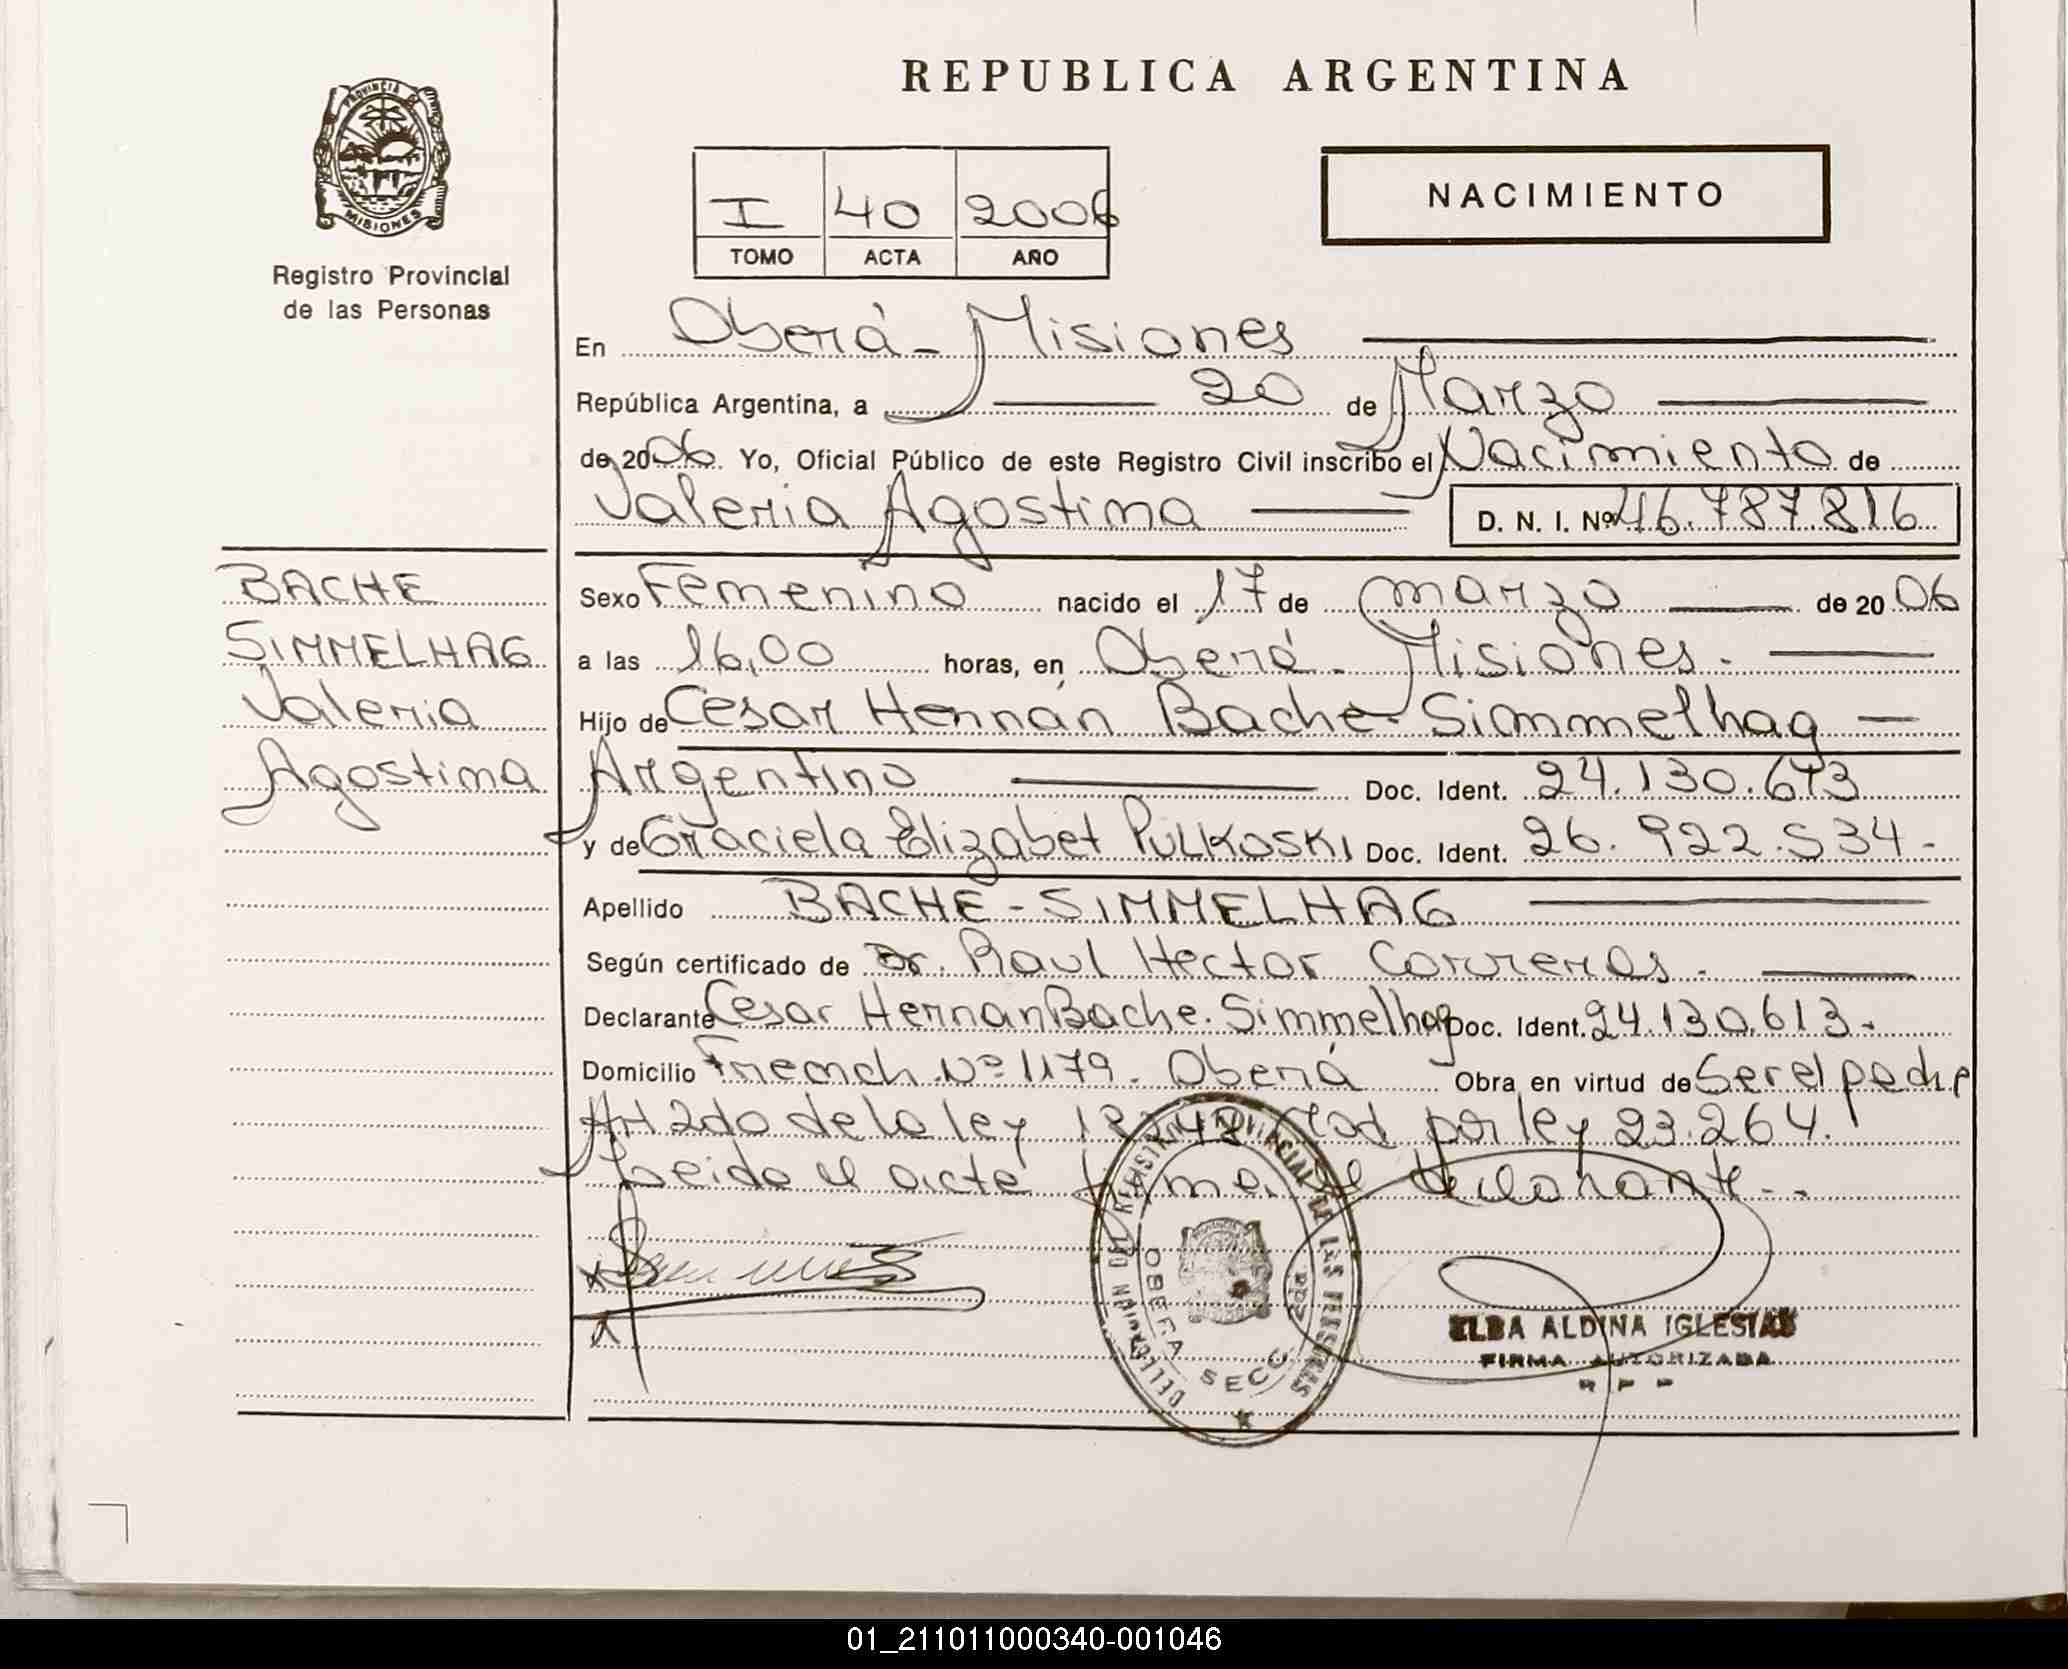 REPUBLICA ARGENTINA
PROVINCIA
MISIONES
Registro Provincial
de las Personas
I 40 2006
TOMO ACTA AÑO
NACIMIENTO
En Oberá - Misiones
República Argentina, a 20 de Marzo
de 2006. Yo, Oficial Público de este Registro Civil inscribo el Nacimiento de
Valeria Agostina D. N. I. Nº 46.787.816
BACHE
SIMMELHAG
Valeria
Agostina
Sexo Femenino nacido el 17 de marzo de 2006
a las 16,00 horas, en Oberá - Misiones.
Hijo de Cesar Hernán Bache-Simmelhag
Argentino Doc. Ident. 24.130.613
y de Graciela Elizabet PULKOSKI Doc. Ident. 26.922.534.-
Apellido BACHE - SIMMELHAG
Según certificado de Dr. Raul Hector Correras.
Declarante Cesar Hernan Bache-Simmelhag Doc. Ident. 24.130.613.-
Domicilio French Nº 1179 - Oberá Obra en virtud de Ser el padre
Art 2do de la ley mod por ley 23.264.
Leida el acta firma el declarante..
DELEGACION DEL REGISTRO PROVINCIAL DE LAS PERSONAS
OBERA SECC
ELBA ALDINA IGLESIAS
FIRMA AUTORIZADA
R P P
01_211011000340-001046